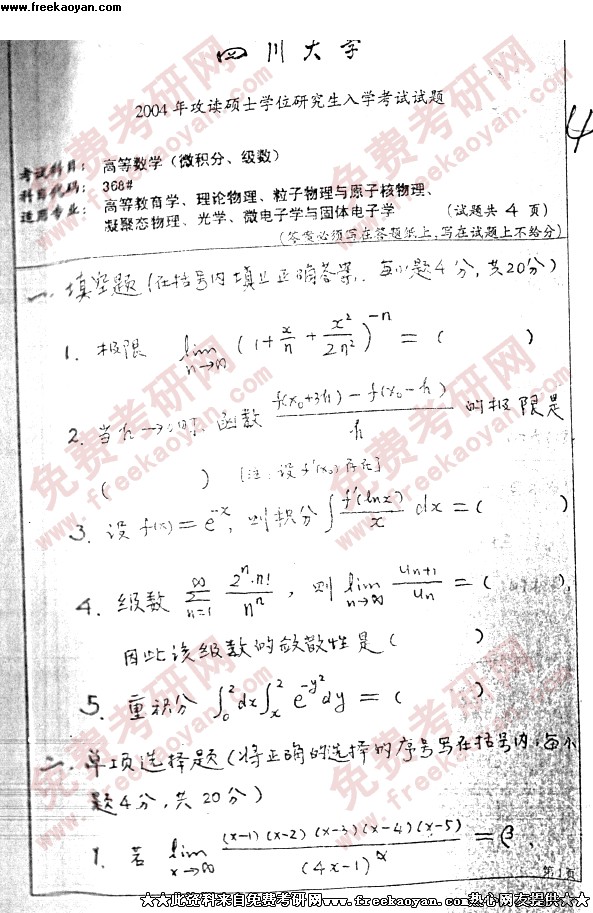 www.freekaoyan.com
四川大学
2004年攻读硕士学位研究生入学考试试题
4
考试科目: 高等数学(微积分、级数)
科目代码: 368#
适用专业: 高等教育学、理论物理、粒子物理与原子核物理、
凝聚态物理、光学、微电子学与固体电子学 (试题共 4 页)
(答案必须写在答题纸上,写在试题上不给分)
一、填空题(在括号内填上正确答案,每小题4分,共20分)
1. 极限 lim_{n→∞} (1+x/n+x²/2n²)^{-n} = ( )
2. 当h→0时,函数 (f(x₀+3h)-f(x₀-h))/h 的极限是
( ) [注:设f'(x₀)存在]
3. 设f(x)=e^{-x},则积分∫f'(lnx)/x dx=( )
4. 级数 Σ_{n=1}^{∞} 2ⁿ·n!/nⁿ,则 lim_{n→∞} u_{n+1}/u_n = ( ),
因此该级数的敛散性是( )
5. 重积分 ∫₀²dx∫ₓ² e^{-y²}dy=( )
二、单项选择题(将正确的选择的序号写在括号内,每小
题4分,共20分)
1. 若 lim_{x→∞} (x-1)(x-2)(x-3)(x-4)(x-5)/(4x-1)^α = β,
第1页
★★此资料来自免费考研网www.freekaoyan.com热心网友提供★★
免费考研网
www.freekaoyan.com